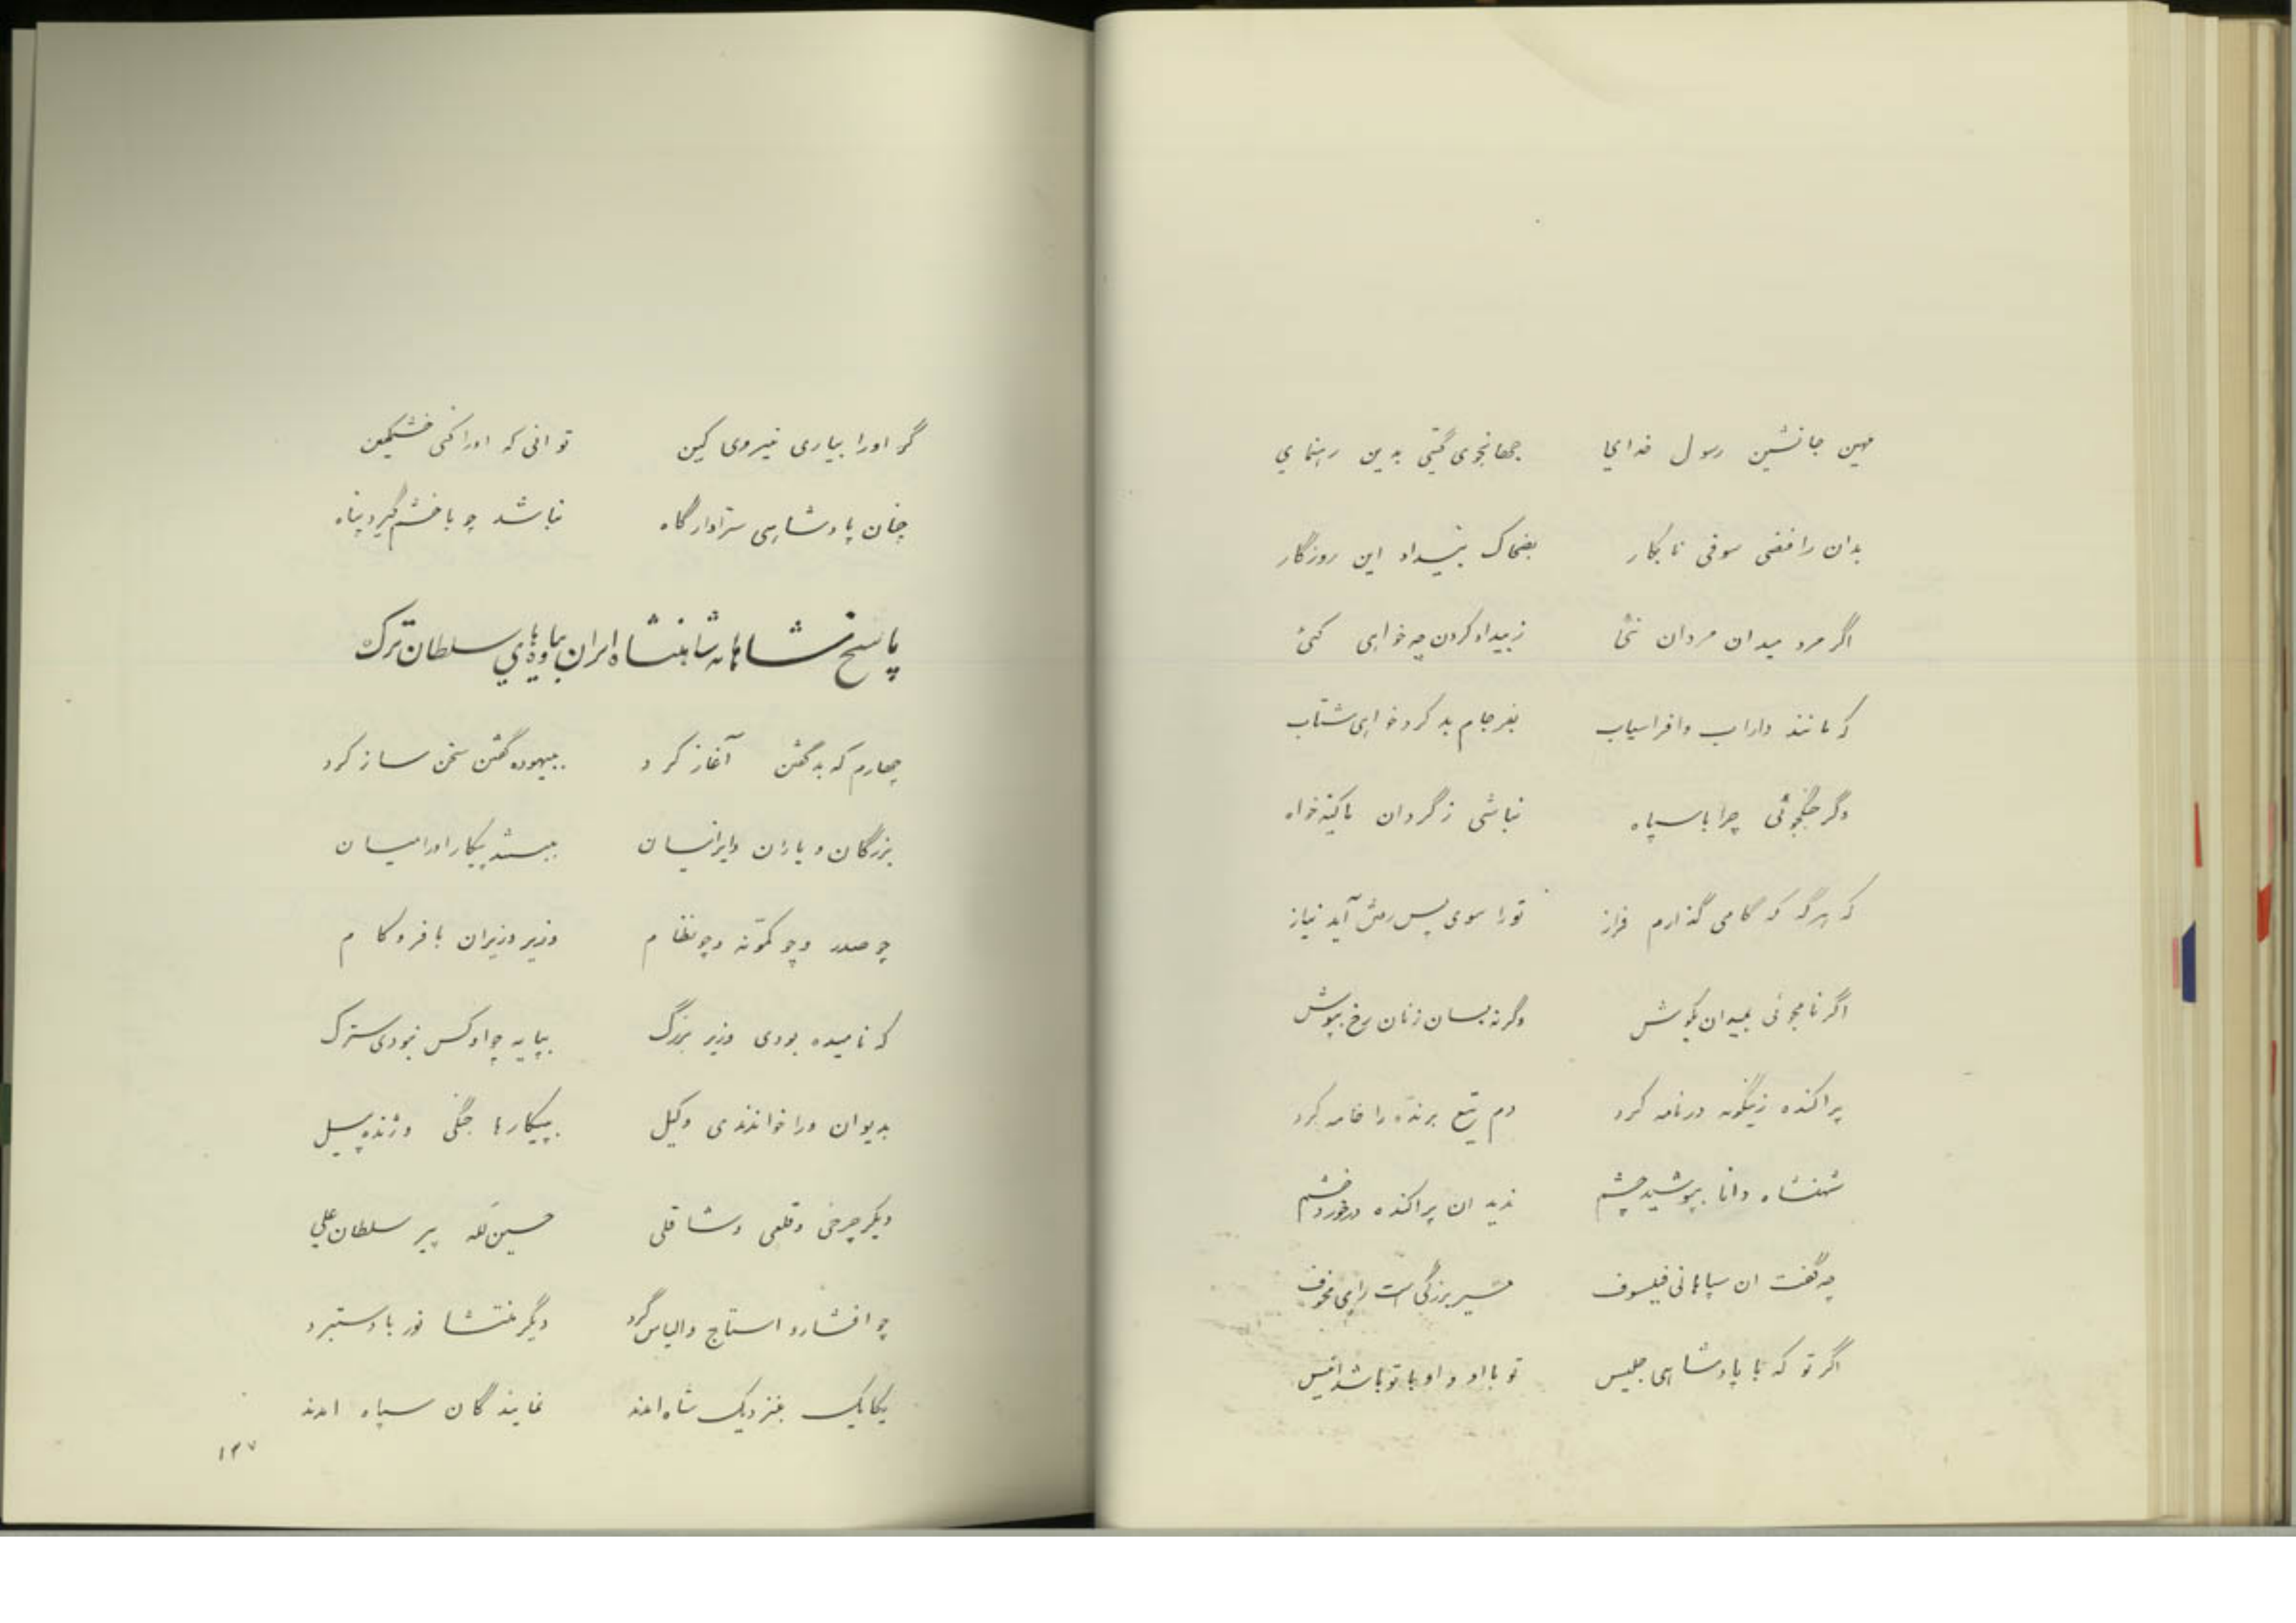 مهین جانشین رسول خدای جهانجوی گیتی بدین رهنمای
بدان رافضی صوفی نابکار بضحاک بیداد این روزگار
اگر مرد میدان مردان نئی ز بیداد کردن چه خواهی کنی
که مانند داراب و افراسیاب بفرجام بد کرد خواهی شتاب
وگر جنگجوئی چرا با سپاه نباشی ز گردان ما کینه خواه
که هرگه که گامی گذارم فراز تو را سوی پس رفتن آید نیاز
اگر نامجوئی بمیدان بکوش وگرنه بسان زنان رخ بپوش
پراکنده زینگونه در نامه کرد دم تیغ برنده را خامه کرد
شهنشاه دانا بپوشید چشم ندید ان پراکنده در خورد خشم
چه گفت ان سپاهانی فیلسوف بزرگی است رای
اگر تو که با پادشاهی جلیس تو با او و او با تو باشد انیس
گر او را بیاری نیروی کین توانی که او را کنی خشمگین
چنان پادشاهی سزاوار گاه نباشد چو با خشم گیرد پناه
پاسخ شاهانه شاهنشاه ایران بیاوه‌های سلطان ترک
چهارم که بد گفتن آغاز کرد ببیهوده گفتن سخن ساز کرد
بزرگان و یاران و ایرانیان ببستند پیکار او را میان
چو صدر و چو کمونه و چو نظام وزیر وزیران با فر و کام
که نامیده بودی وزیر بزرگ بپایه چو او کس نبودی سترگ
بدیوان ورا خواندندی وکیل بپیکارها جنگی و ژنده پیل
دیگر چرخی و قلعی و شاقلی حسین لله پیر سلطان علی
چو افشار و استاج و الیاس گرد دیگر منتشا نور با دستبرد
یکایک بنزدیک شاه امدند نمایندگان سپاه امدند
۱۳۷